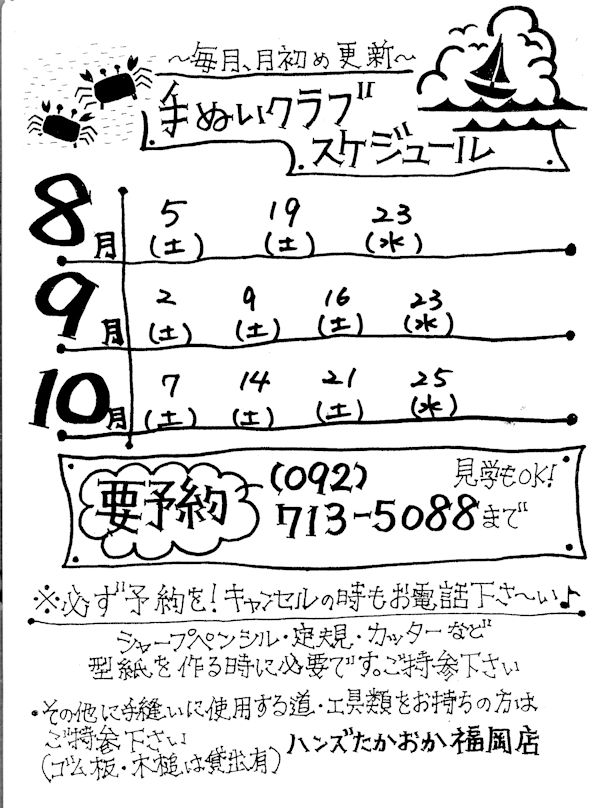 〜毎月、月初め更新〜
手ぬいクラブ
スケジュール
8月 5(土) 19(土) 23(水)
9月 2(土) 9(土) 16(土) 23(水)
10月 7(土) 14(土) 21(土) 25(水)
要予約 (092) 見学もOK!
713-5088まで
※必ず予約を!キャンセルの時もお電話下さ〜い♪
シャープペンシル・定規・カッターなど
型紙を作る時に必要です。ご持参下さい
・その他に手縫いに使用する道・工具類をお持ちの方は
ご持参下さい
(ゴム板・木槌は貸出有) ハンズたかおか福岡店